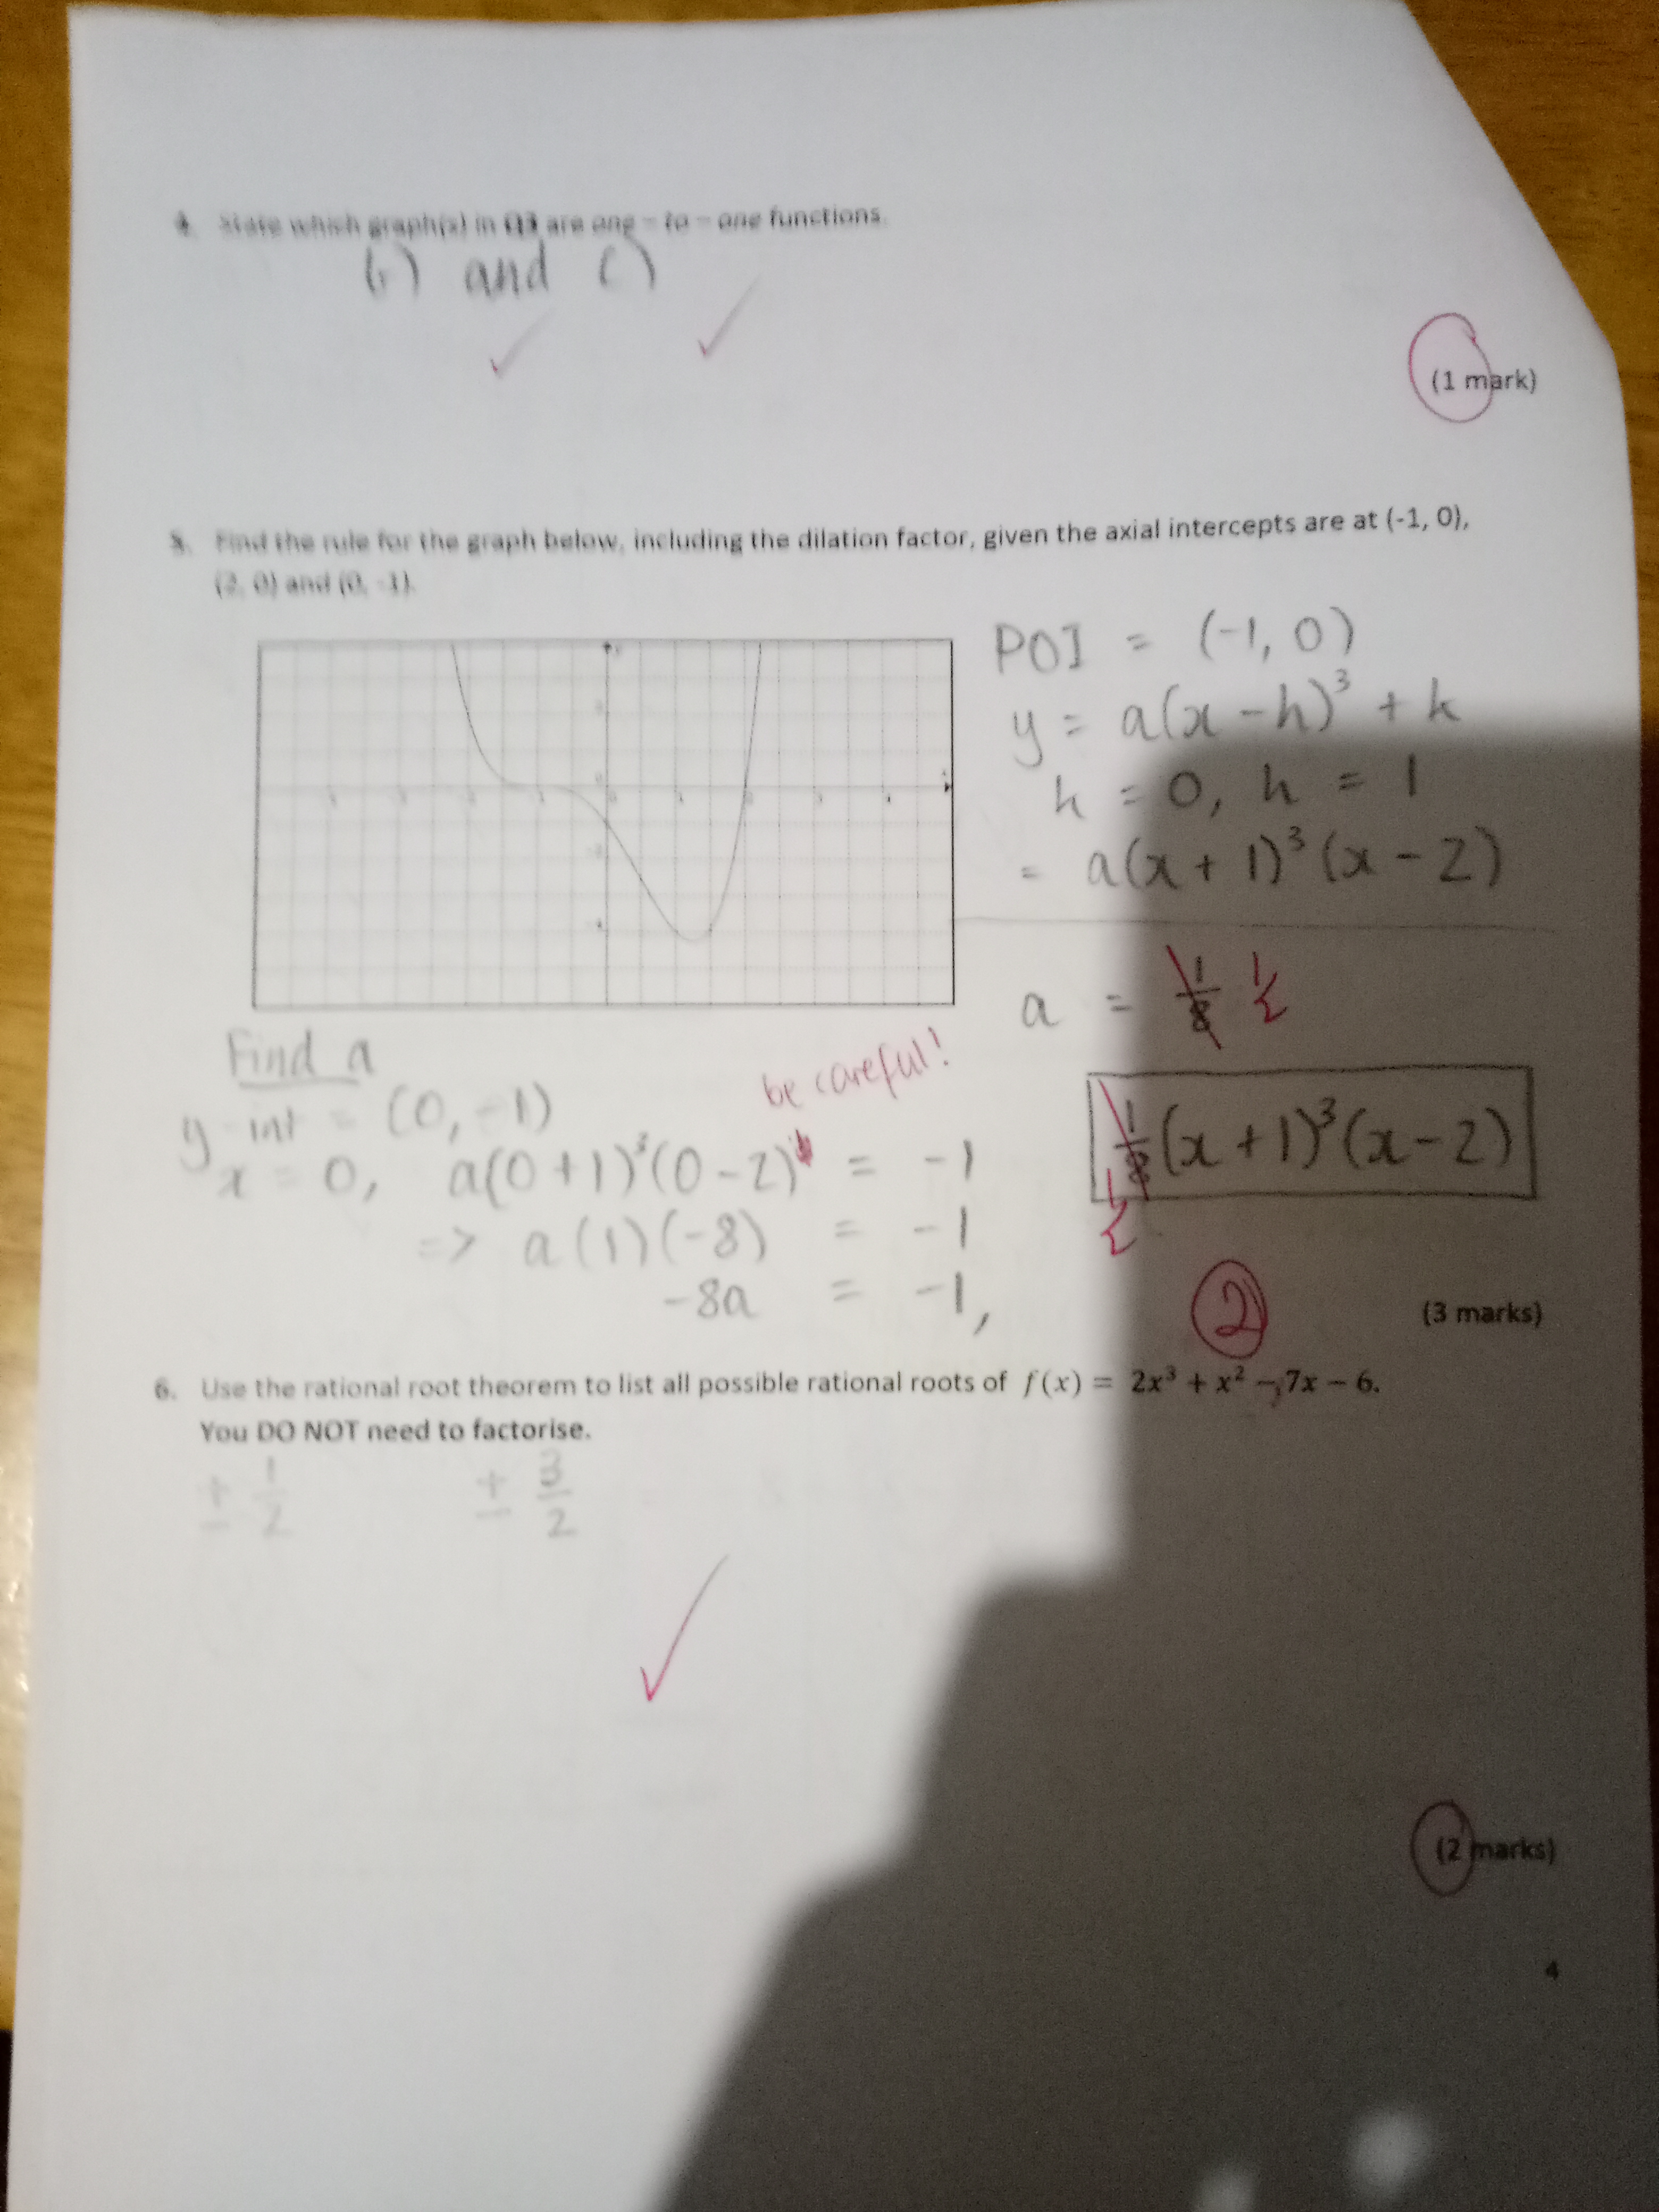 4. State which graph(s) in Q3 are one – to – one functions.
b) and c)
(1 mark)
5. Find the rule for the graph below, including the dilation factor, given the axial intercepts are at (-1, 0),
(2, 0) and (0, -1).
POI = (-1, 0)
y = a(x - h)³ + k
k = 0, h = 1
= a(x + 1)³(x - 2)
a = 1/8 1/2
Find a
be careful!
y-int = (0, -1)
x = 0, a(0 + 1)³(0 - 2) = -1
=> a(1)(-8) = -1
-8a = -1,
1/8 (x + 1)³(x - 2)
1/2
2
(3 marks)
6. Use the rational root theorem to list all possible rational roots of f(x) = 2x³ + x² - 7x - 6.
You DO NOT need to factorise.
± 1/2 ± 3/2
(2 marks)
4